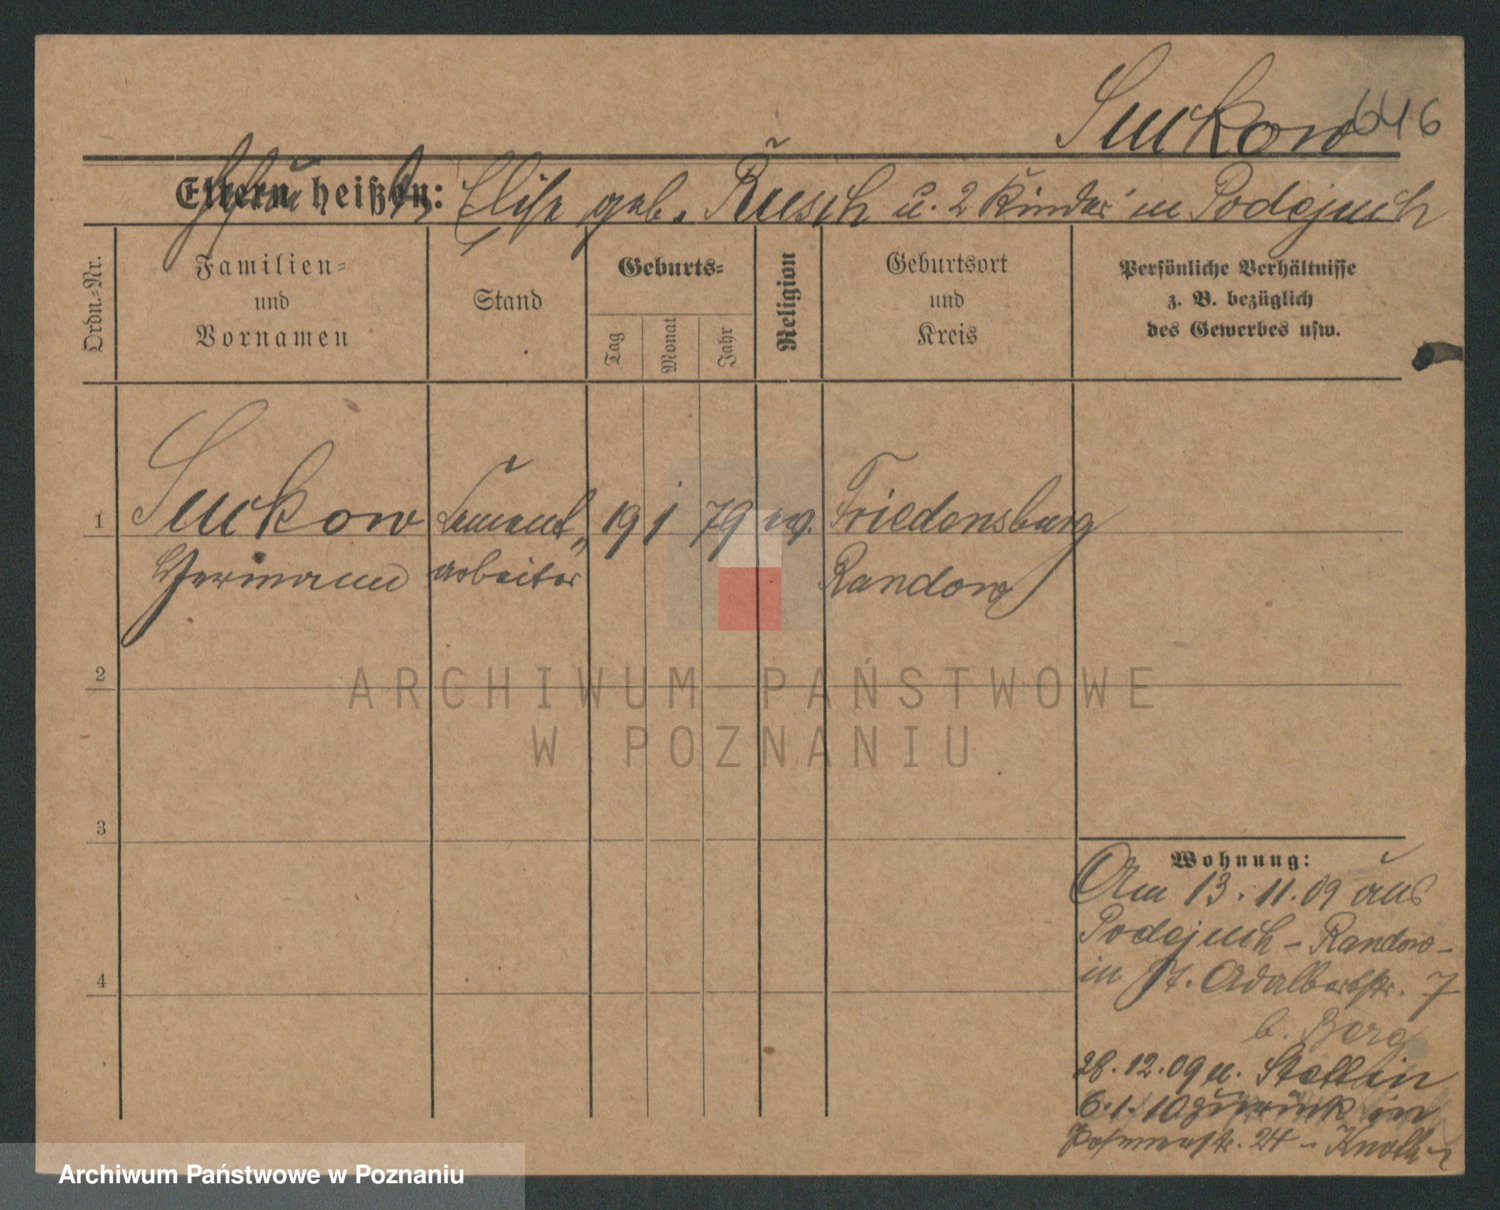 Suckow 646
Eltern heißen: Elise geb. Rusch u. 2 Kinder in Podejuch
Ordn.-Nr.
Familien-
und
Vornamen
Stand
Geburts-
Tag
Monat
Jahr
Religion
Geburtsort
und
Kreis
Persönliche Verhältnisse
z. B. bezüglich
des Gewerbes usw.
1 Suckow Cement- 19 1 79 ev. Friedensburg
Hermann arbeiter Randow
2
3
4
Wohnung:
Am 13.11.09 aus
Podejuch - Randow -
in St. Adalbertstr. 7
b. Berg
28.12.09 n. Stettin
6.1.10 zurück in
24 -
ARCHIWUM PAŃSTWOWE
W POZNANIU
Archiwum Państwowe w Poznaniu